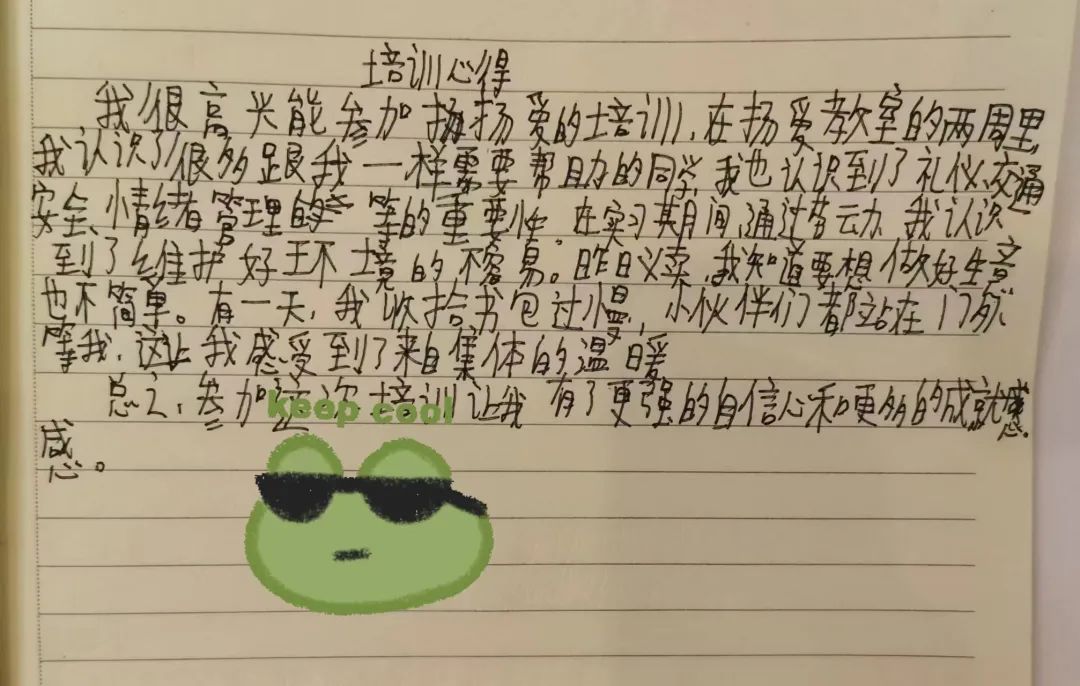 培训心得
我很高兴能参加扬扬爱的培训,在扬爱教室的两周里,
我认识了很多跟我一样需要帮助的同学,我也认识到了礼仪、交通
安全、情绪管理的等的重要性。在实习期间,通过劳动,我认识
到了维护好环境的不容易。昨日义卖,我知道要想做好生意
也不简单。有一天,我收拾书包过慢,小伙伴们都站在门旁
等我,这让我感受到了来自集体的温暖
总之,参加这次培训让我有了更强的自信心和更多的成就感。
感。
keep cool